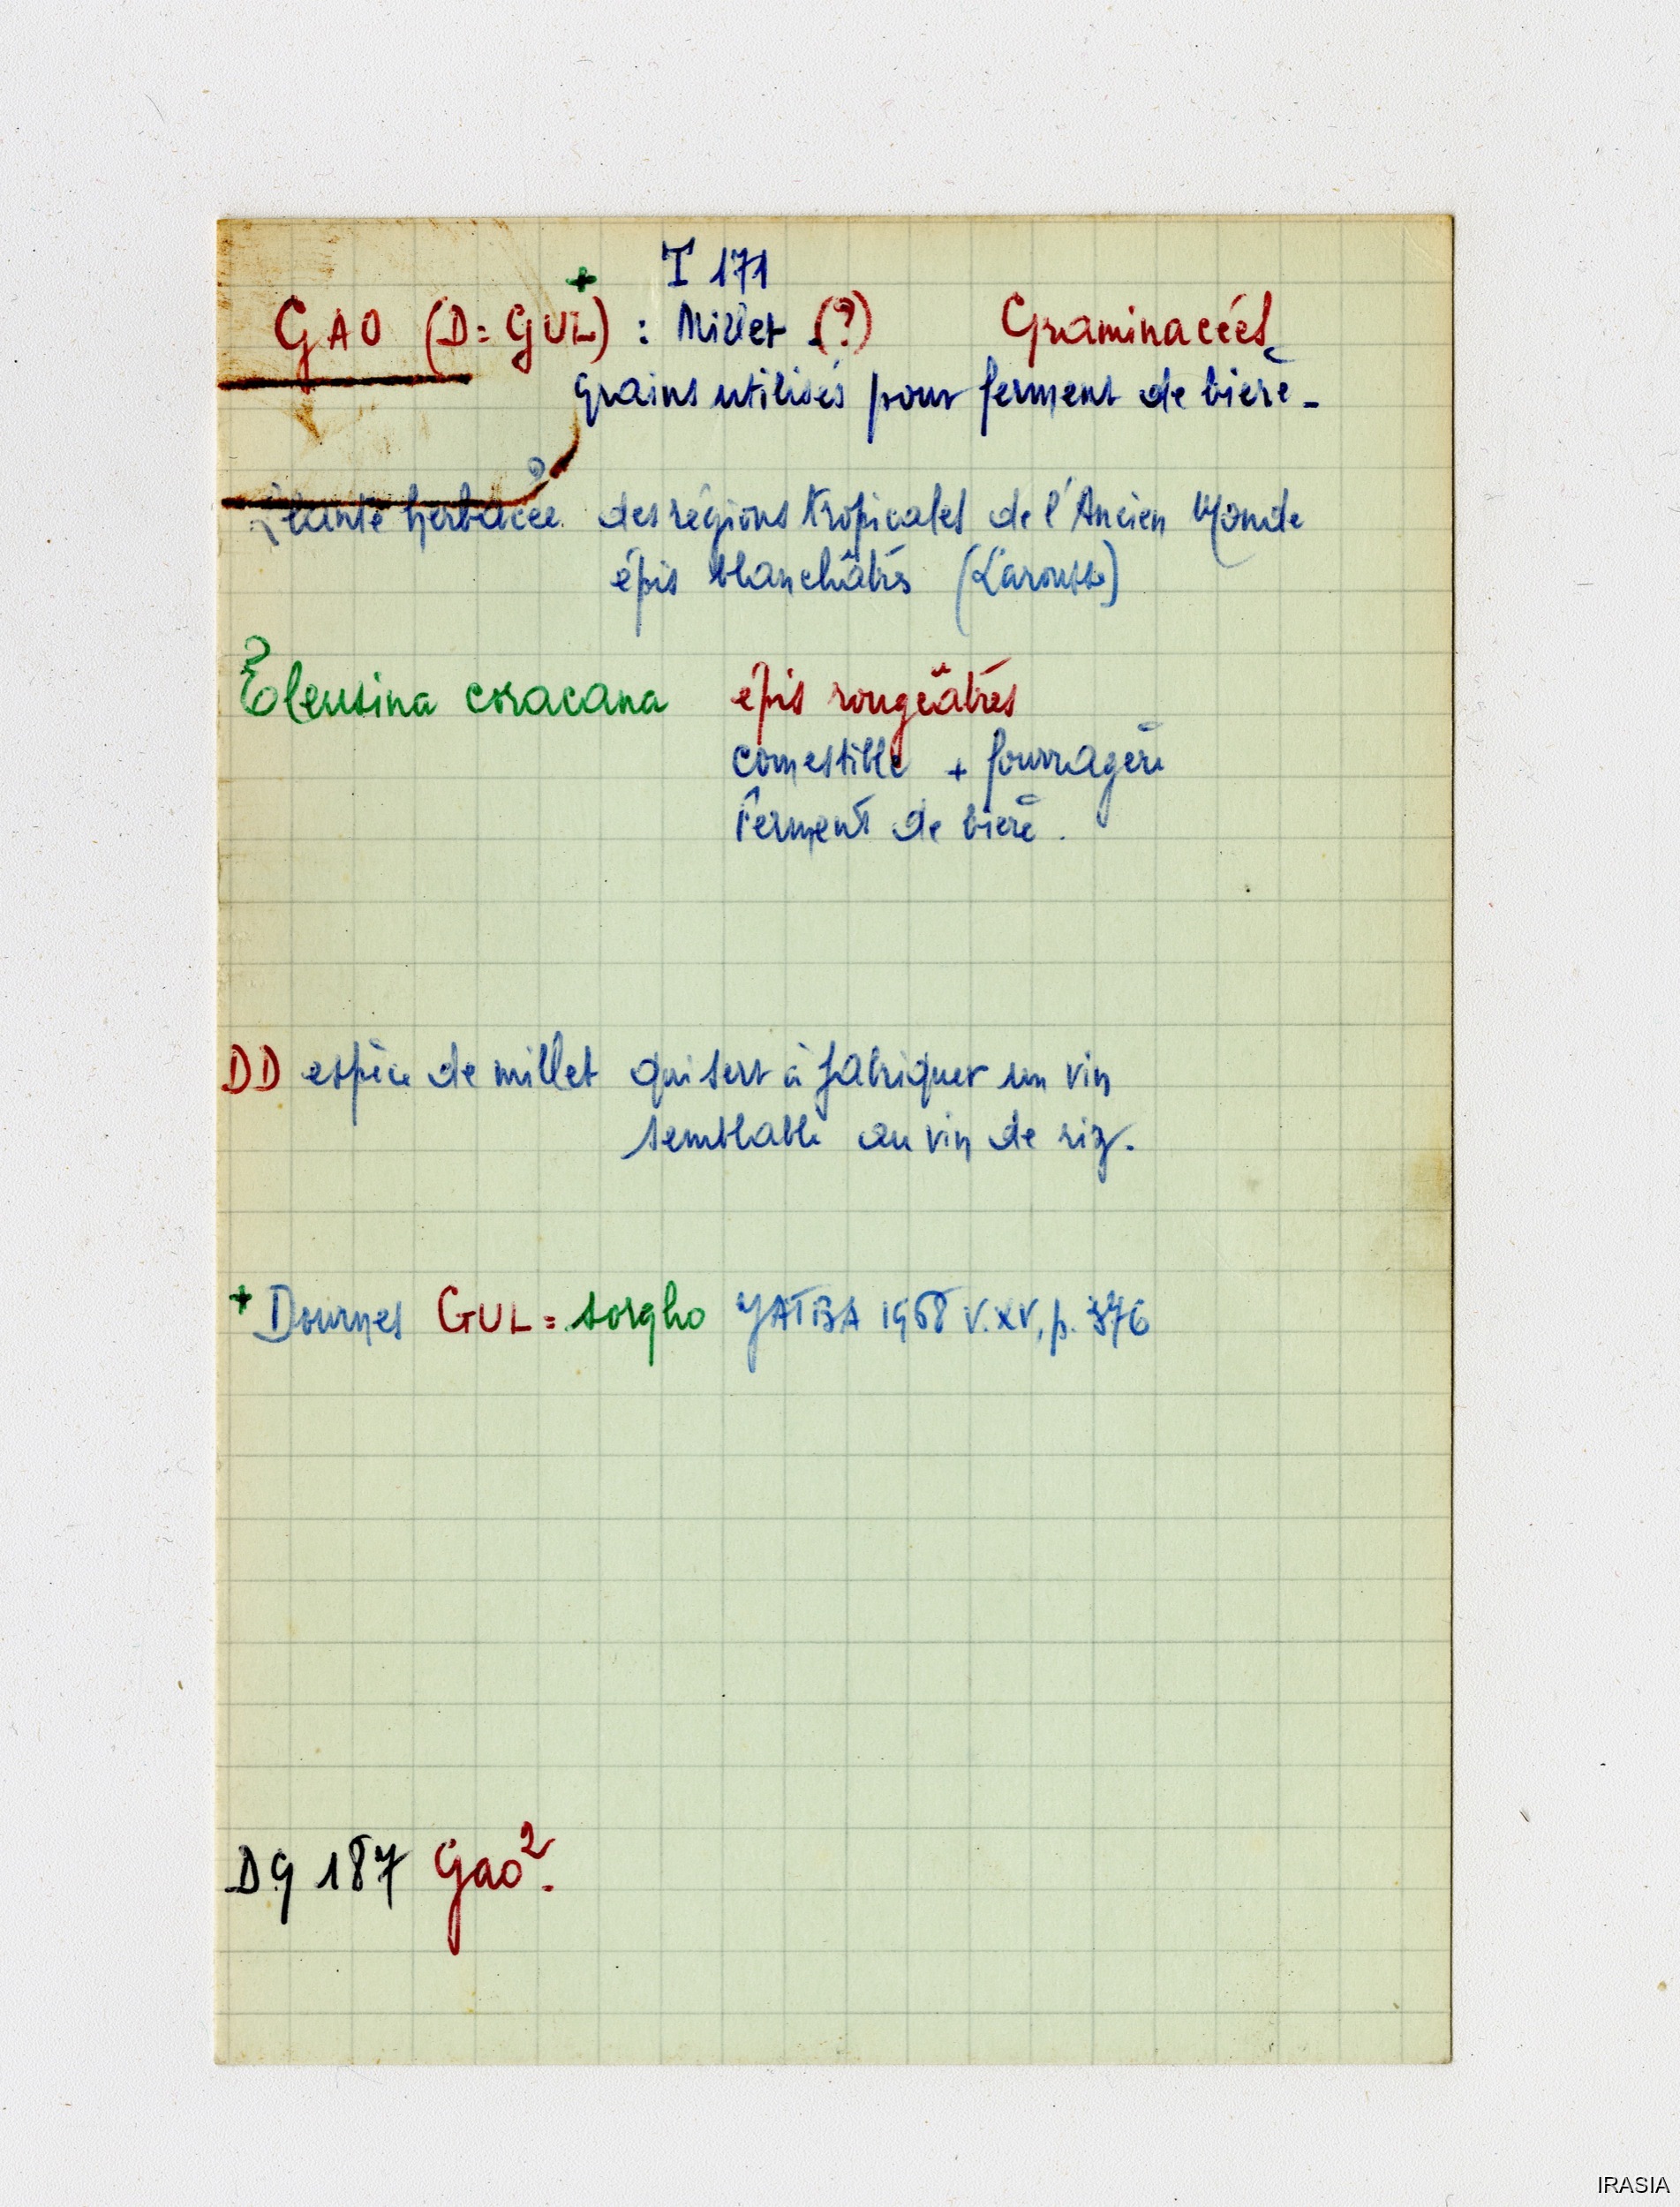 T 171
GAO (D = GUL)+ : Millet (?) Graminacées
grains utilisés pour ferment de bière -
Plante herbacée des régions tropicales de l'Ancien Monde
épis blanchâtres (Larousse)
Eleusina coracana épis rougeâtres
comestible + fourragère
ferment de bière .
DD espèce de millet qui sert à fabriquer un vin
semblable au vin de riz.
+ Dournes GUL = sorgho JATBA 1968 V. XV, p. 376
DG 187 Gao².
IRASIA